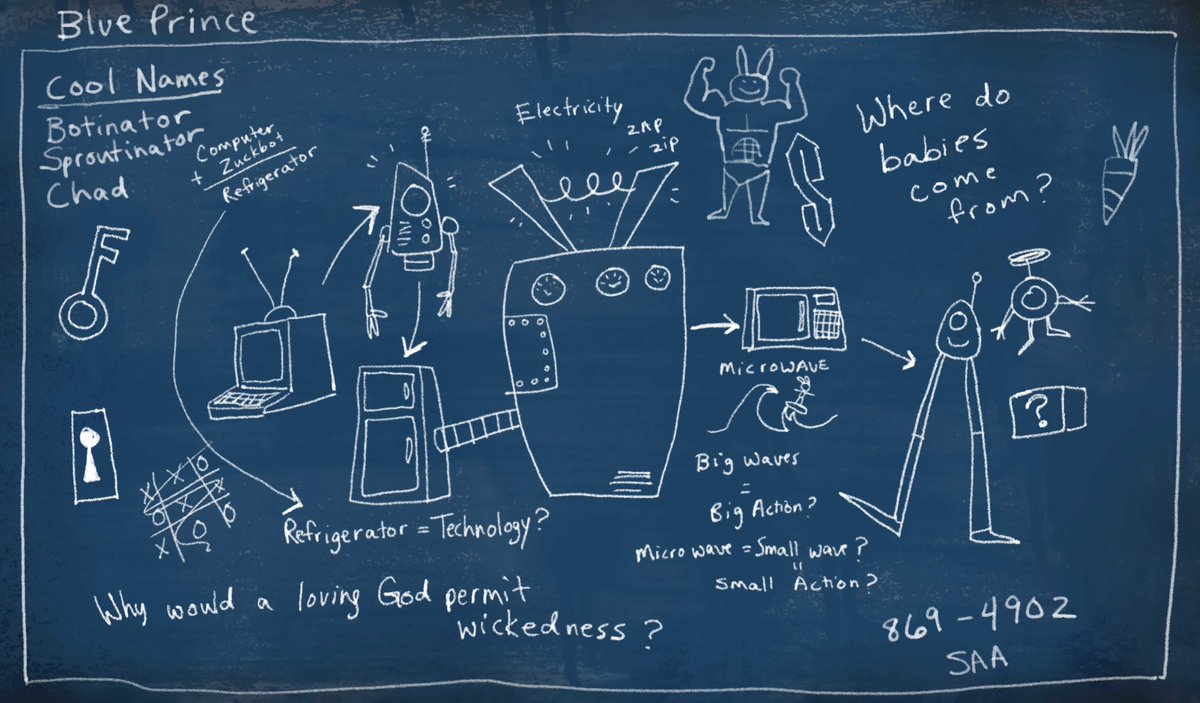 Blue Prince
Cool Names
Botinator
Sproutinator
Chad
Computer
+ Zuckbot +
Refrigerator
Electricity
ZAP
ZIP
Where do
babies
come
from?
MICROWAVE
Big Waves
=
Big Action?
Micro wave = Small wave?
=
Small Action?
?
X X O
O X X O
X O
Refrigerator = Technology?
Why would a loving God permit
wickedness?
869-4902
SAA